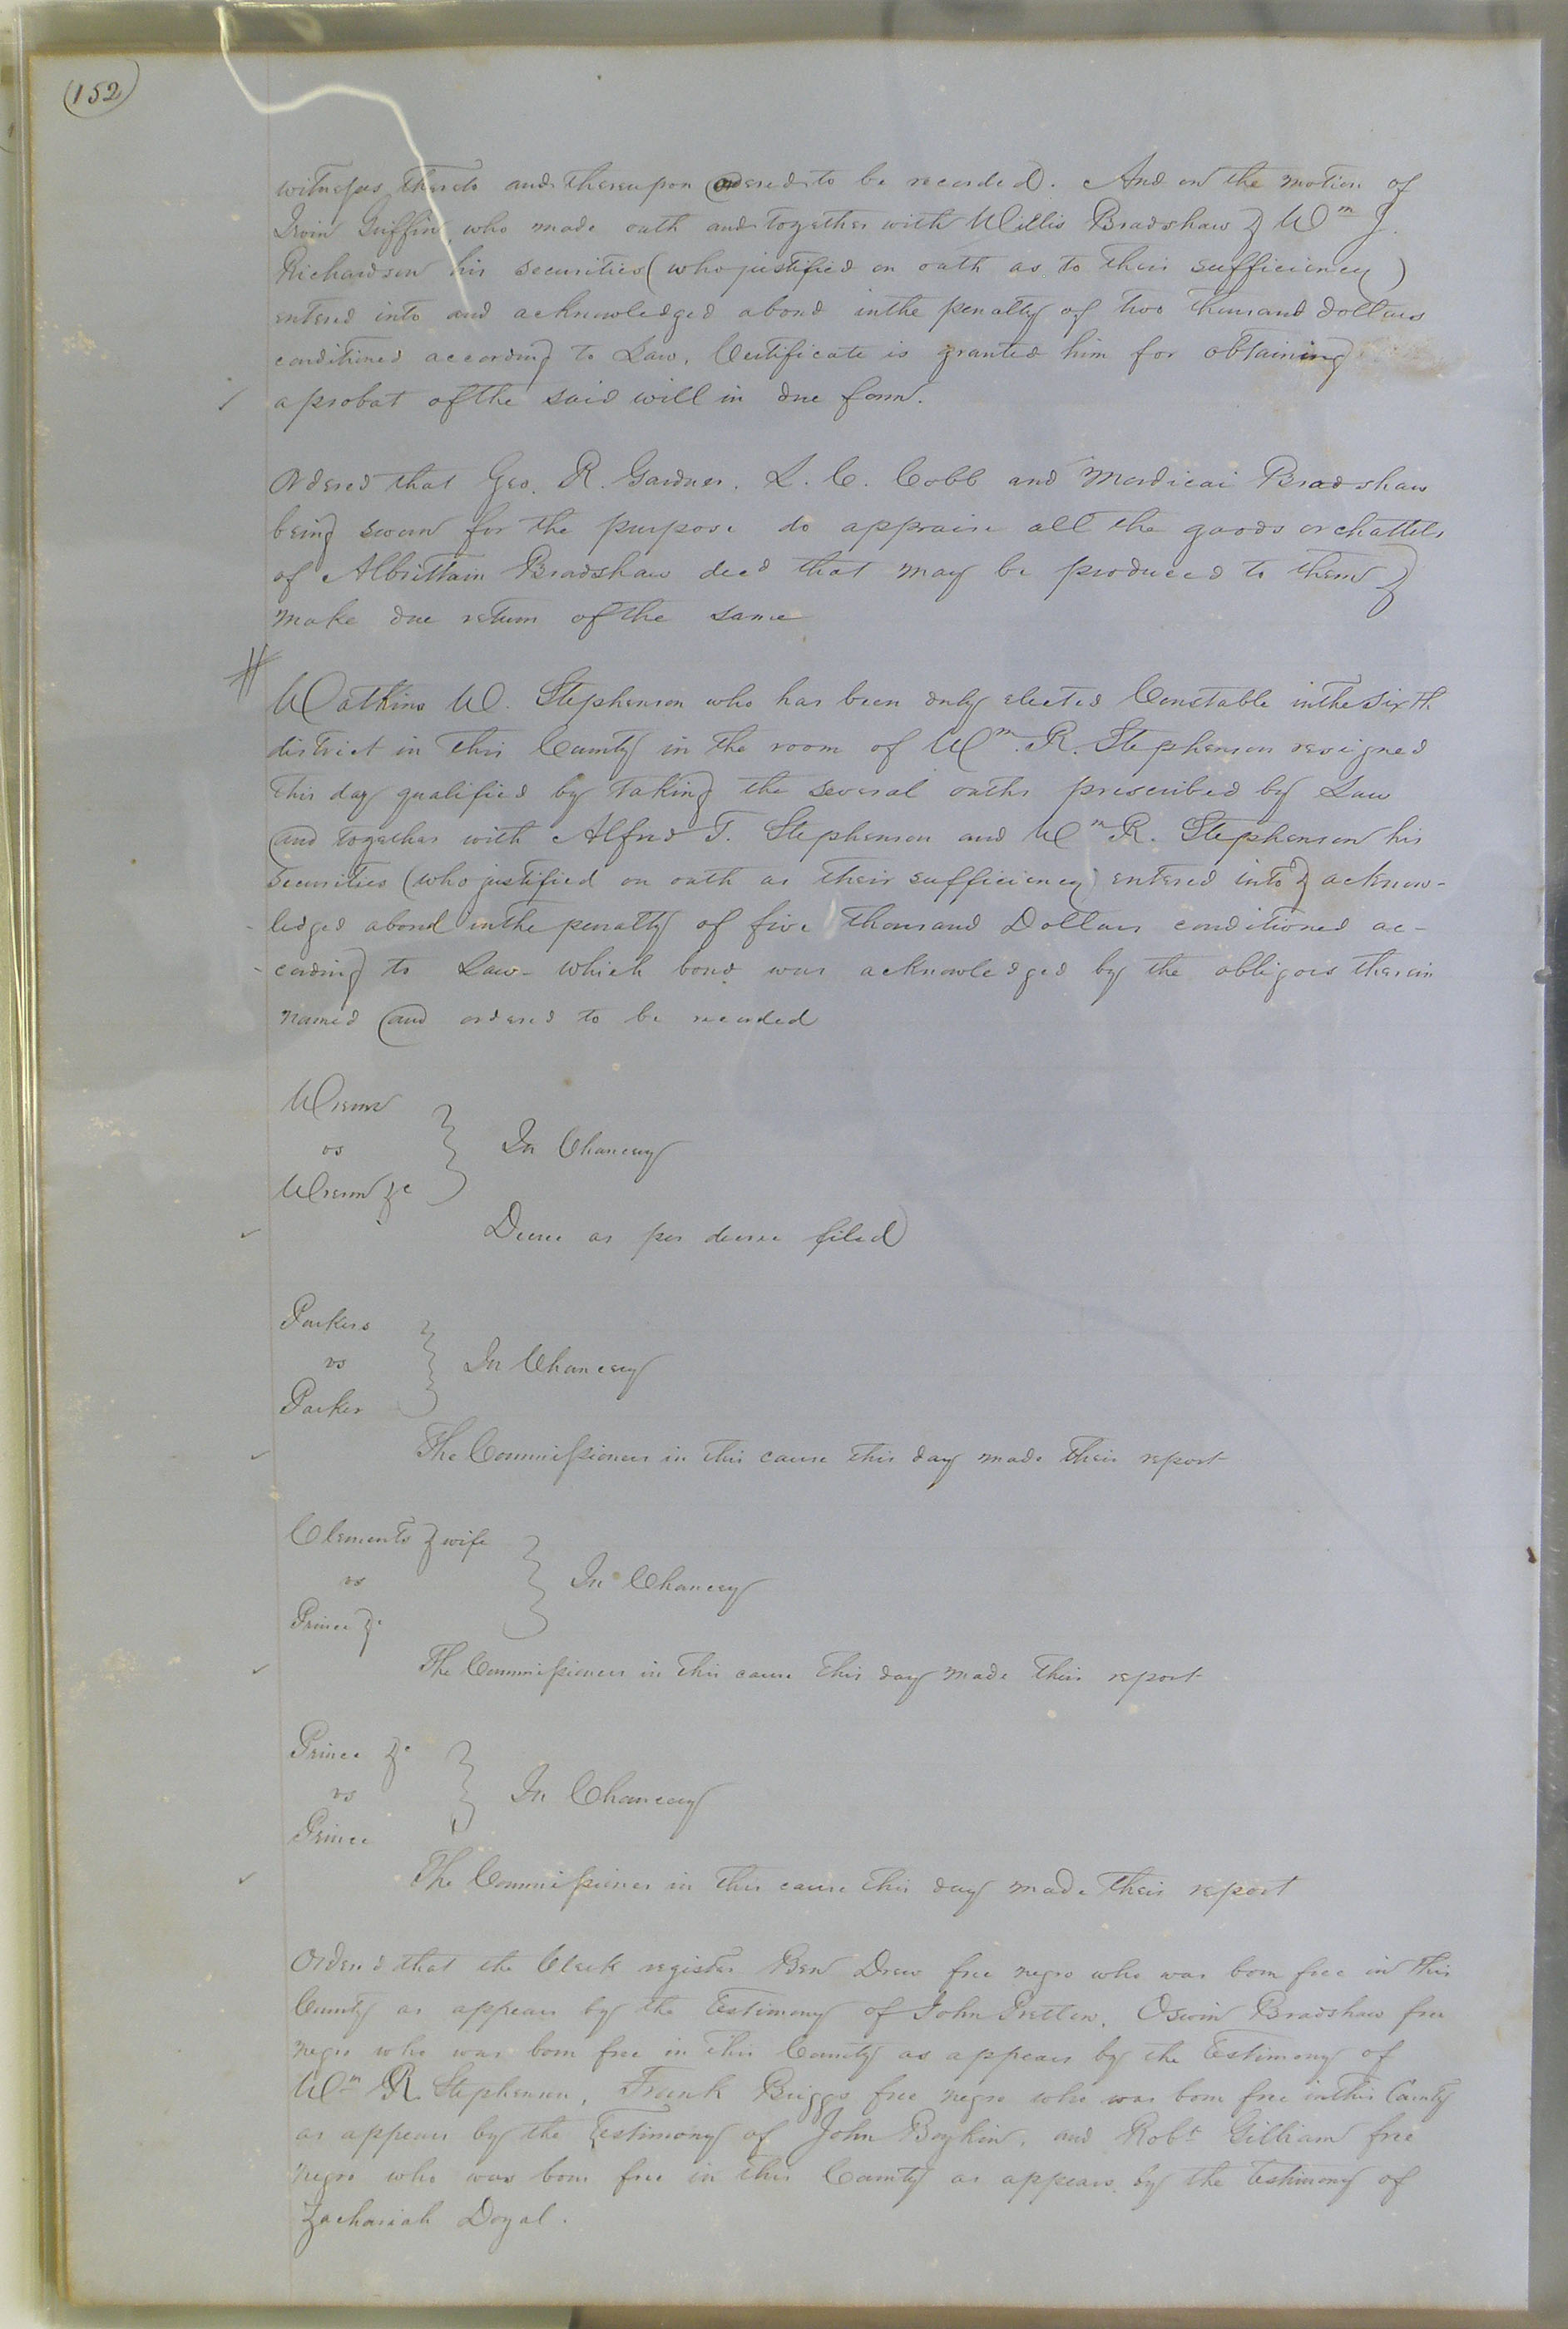 (152)
witnesses thereto and thereupon ordered to be recorded. And on the motion of
Irvin Griffin, who made oath and together with Willis Bradshaw & Wm J.
Richardson his securities (who justified on oath as to their sufficiency)
entered into and acknowledged a bond in the penalty of two thousand dollars
conditioned according to Law. Certificate is granted him for obtaining
a probat of the said will in due form.
Ordered that Geo. R. Gardner, L. C. Cobb and Mordicai Bradshaw
being sworn for the purpose do appraise all the goods or chattels
of Albrittain Bradshaw decd that may be produced to them &
make due return of the same
Watkins W. Stephenson who has been duly elected Constable in the sixth
district in this County in the room of Wm. R. Stephenson resigned
this day qualified by taking the several oaths prescribed by Law
and together with Alfred T. Stephenson and Wm R. Stephenson his
Securities (who justified on oath as their sufficiency) entered into & acknow-
ledged a bond in the penalty of five thousand Dollars conditioned ac-
-cording to Law - which bond was acknowledged by the obligors therein
named and ordered to be recorded
Wrenn
vs
Wrenn &c
In Chancery
Decree as per decree filed
Parkers
vs
Parker
In Chancery
The Commissioners in this cause this day made their report
Clements & wife
vs
Prince &c
In Chancery
The Commissioners in this cause this day made their report
Prince &c
vs
Prince
In Chancery
The Commissioners in this cause this day made their report
Ordered that the Clerk register Ben Drew free negro who was born free in this
County as appears by the testimony of John Pretlow, Oswin Bradshaw free
negro who was born free in this County as appears by the testimony of
Wm R. Stephenson, Frank Briggs free negro who was born free in this County
as appears by the testimony of John Boykin, and Robt Gilliam free
negro who was born free in this County as appears by the testimony of
Zachariah Doyal.